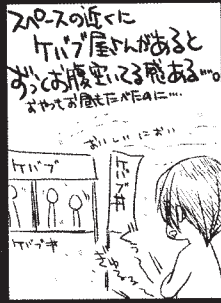 スペースの近くに
ケバブ屋さんがあると
ずっとお腹空いてる感ある…。
おやつもお昼もたべたのに…
おいしいにおい
ケバブ
ケバブ丼
ケバブ丼
ぎゅるるる